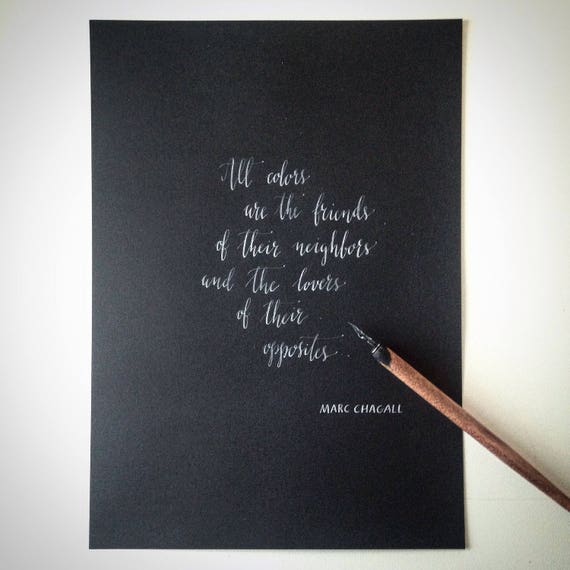 All colors
are the friends
of their neighbors
and the lovers
of their
opposites.
MARC CHAGALL